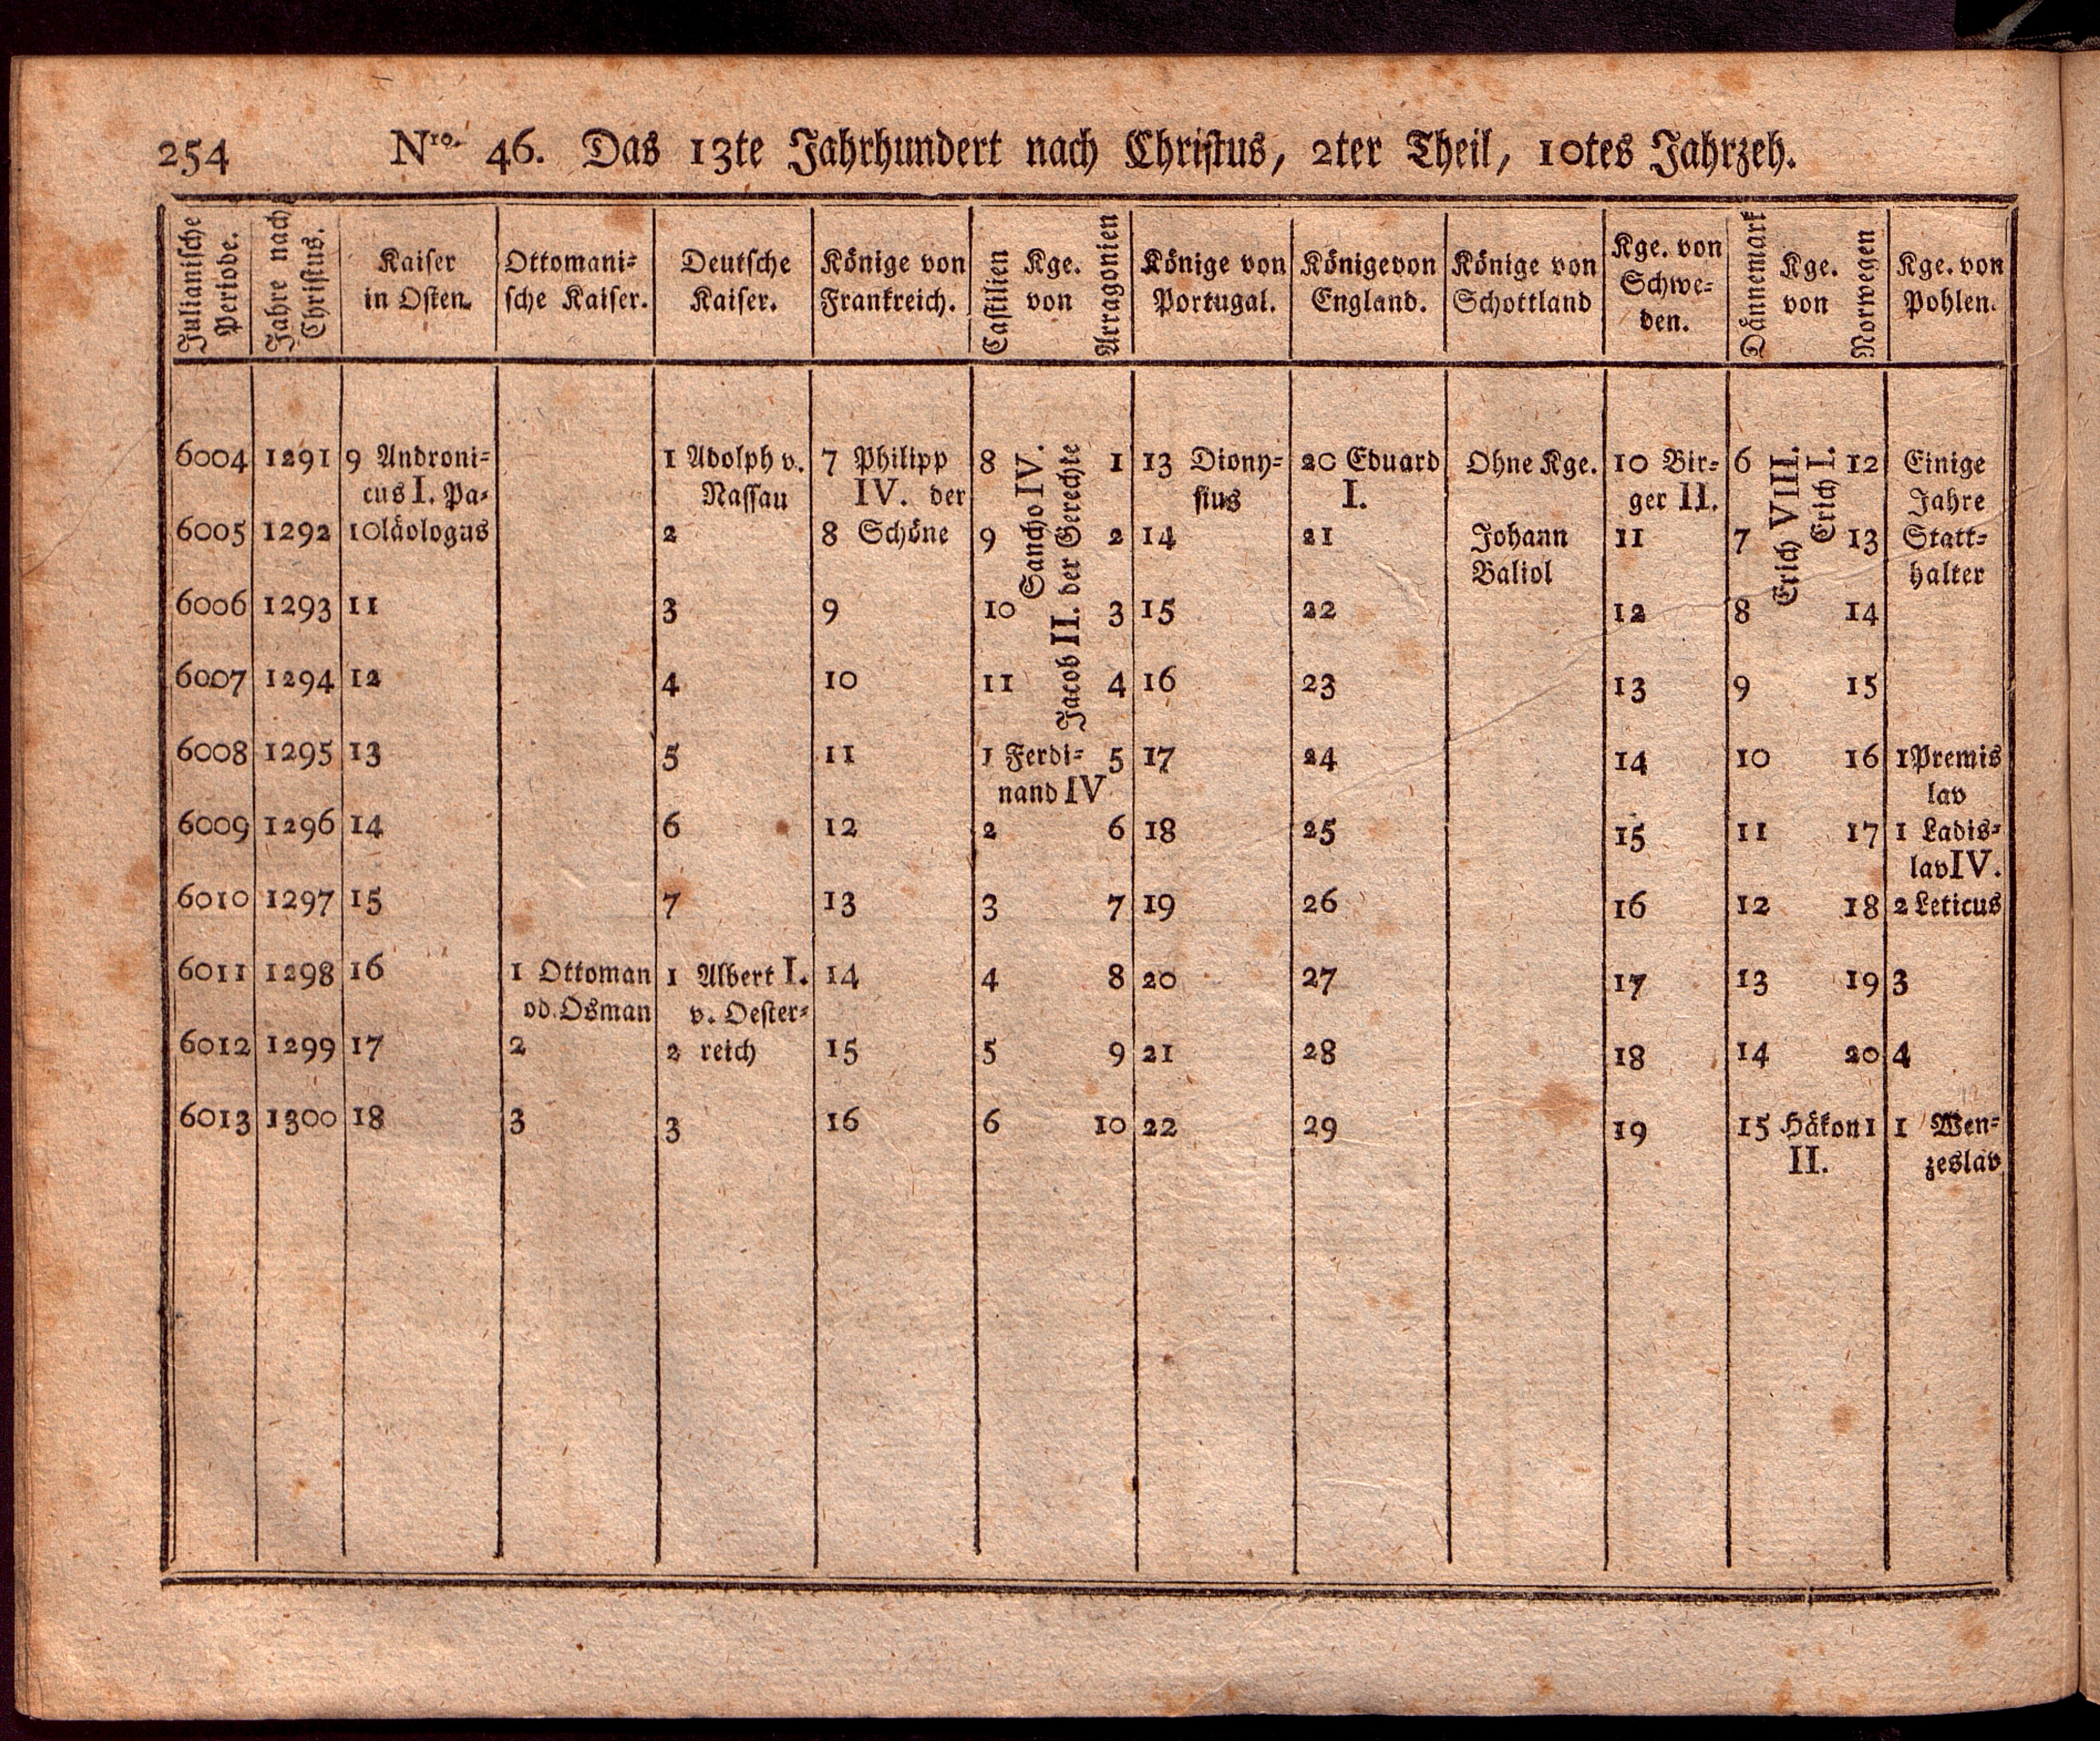 254 Nro. 46. Das 13te Jahrhundert nach Christus, 2ter Theil, 10tes Jahrzeh.
Julianische Periode.
Jahre nach Christus.
Kaiser
in Osten.
Ottomani=
sche Kaiser.
Deutsche
Kaiser.
Könige von
Frankreich.
Castilien
Kge.
von
Arragonien
Könige von
Portugal.
Könige von
England.
Könige von
Schottland
Kge. von
Schwe=
den.
Dännemark
Kge.
von
Norwegen
Kge. von
Pohlen.
6004 1291 9 Androni= 1 Adolph v. 7 Philipp 8 Sancho IV. Jacob II. der Gerechte 1 13 Diony= 20 Eduard Ohne Kge. 10 Bir= 6 Erich VIII. Erich I. 12 Einige
cus I. Pa= Nassau IV. der sius I. ger II. Jahre
6005 1292 10 läologus 2 8 Schöne 9 2 14 21 Johann 11 7 13 Statt=
Baliol halter
6006 1293 11 3 9 10 3 15 22 12 8 14
6007 1294 12 4 10 11 4 16 23 13 9 15
6008 1295 13 5 11 1 Ferdi= 5 17 24 14 10 16 1 Premis
nand IV lav
6009 1296 14 6 12 2 6 18 25 15 11 17 1 Ladis=
lav IV.
6010 1297 15 7 13 3 7 19 26 16 12 18 2 Leticus
6011 1298 16 1 Ottoman 1 Albert I. 14 4 8 20 27 17 13 19 3
od. Osman v. Oester=
6012 1299 17 2 2 reich 15 5 9 21 28 18 14 20 4
6013 1300 18 3 3 16 6 10 22 29 19 15 Håkon 1 1 Wen=
II. zeslav